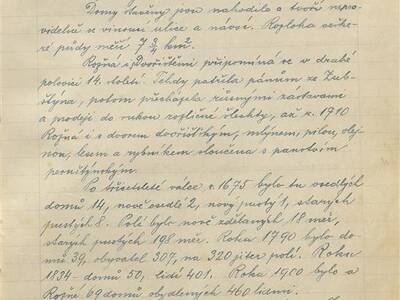 Domy stavěny jsou nahodile a tvoří nepra-
videlně se vinoucí ulice a návsi. Rozloha veške-
ré půdy měří 7 km2.
Rožná i s Dvořištěmi připomíná se v druhé
polovici 14. století. Tehdy patřila pánům ze Zub-
štýna, potom přecházela různými zástavami
a prodeji do rukou rozličné šlechty, až r. 1710
Rožná i s dvorem dvořišťským, mlýnem, pilou, olej-
nou, lesem a rybníkem sloučena s panstvím
pernštýnským.
Po třicetileté válce r. 1675 bylo tu osedlých
domů 14, nově osedlé 2, nový pustý 1, starých
pustých 8. Polí bylo nově zdělaných 18 měr,
starých pustých 198 měr. Roku 1790 bylo do-
mů 39, obyvatel 307, na 320 jiter polí. Roku
1834 - domů 50, lidí 401. Roku 1900 bylo v
Rožné 69 domů obydlených 460 lidmi.